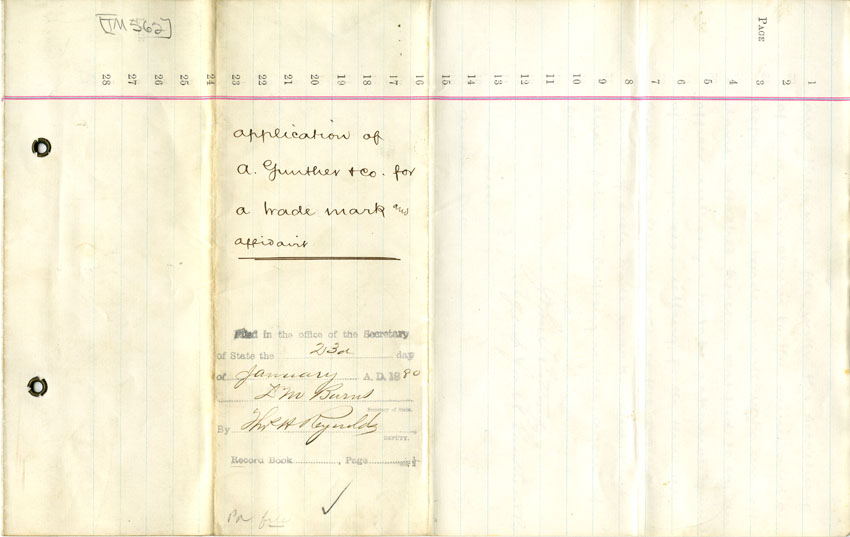 [TM 562]
PAGE
1 2 3 4 5 6 7 8 9 10 11 12 13 14 15 16 17 18 19 20 21 22 23 24 25 26 27 28
application of
A. Gunther & Co. for
a trade mark and
affidavit
Filed in the office of the Secretary
of State the 23d day
of January A.D. 1880
D M Burns
Secretary of State.
By Thos H Reynolds
DEPUTY.
Record Book , Page